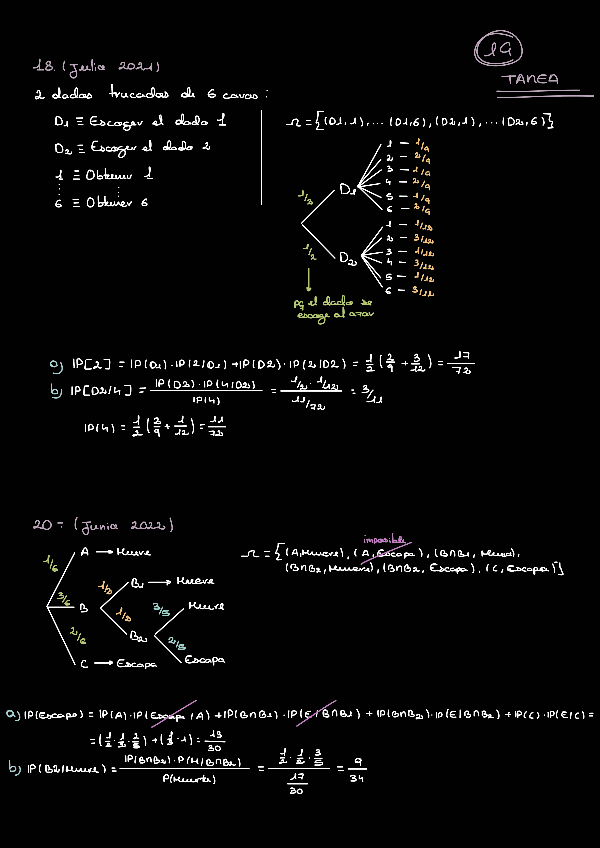 19
TAREA
18. (Julio 2021)
2 dados trucados de 6 caras:
D1 ≡ Escoger el dado 1
D2 ≡ Escoger el dado 2
1 ≡ Obtener 1
⋮ ⋮
6 ≡ Obtener 6
Ω = {(D1,1), ... (D1,6), (D2,1), ... (D2,6)}
1/2 D1
1 — 1/9
2 — 2/9
3 — 1/9
4 — 2/9
5 — 1/9
6 — 2/9
1/2 D2
1 — 1/12
2 — 3/12
3 — 1/12
4 — 3/12
5 — 1/12
6 — 3/12
pq el dados se
escoge al azar
a) IP[2] = IP(D1)·IP(2/D1)+IP(D2)·IP(2/D2) = 1/2 (2/9 + 3/12) = 17/72
b) IP[D2/4] = IP(D2)·IP(4/D2) / IP(4) = 1/2 · 1/12 / 11/72 = 3/11
IP(4) = 1/2 (2/9 + 1/12) = 11/72
20 - (Junio 2022)
Ω = {(A,Muere), (A,Escapa), (B∩B1, Muere),
imposible
(B∩B2, Muere), (B∩B2, Escapa), (C, Escapa)}
1/6 A → Muere
3/6 B
1/2 B1 → Muere
1/2 B2
3/5 Muere
2/5 Escapa
2/6 C → Escapa
a) IP(Escapa) = IP(A)·IP(Escapa/A) + IP(B∩B1)·IP(E/B∩B1) + IP(B∩B2)·IP(E/B∩B2) + IP(C)·IP(E/C) =
= (1/2 · 1/2 · 2/5) + (1/3 · 1) = 13/30
b) IP(B2/Muere) = IP(B∩B2)·P(M/B∩B2) / P(Muerte) = 1/2 · 1/2 · 3/5 / 17/30 = 9/34